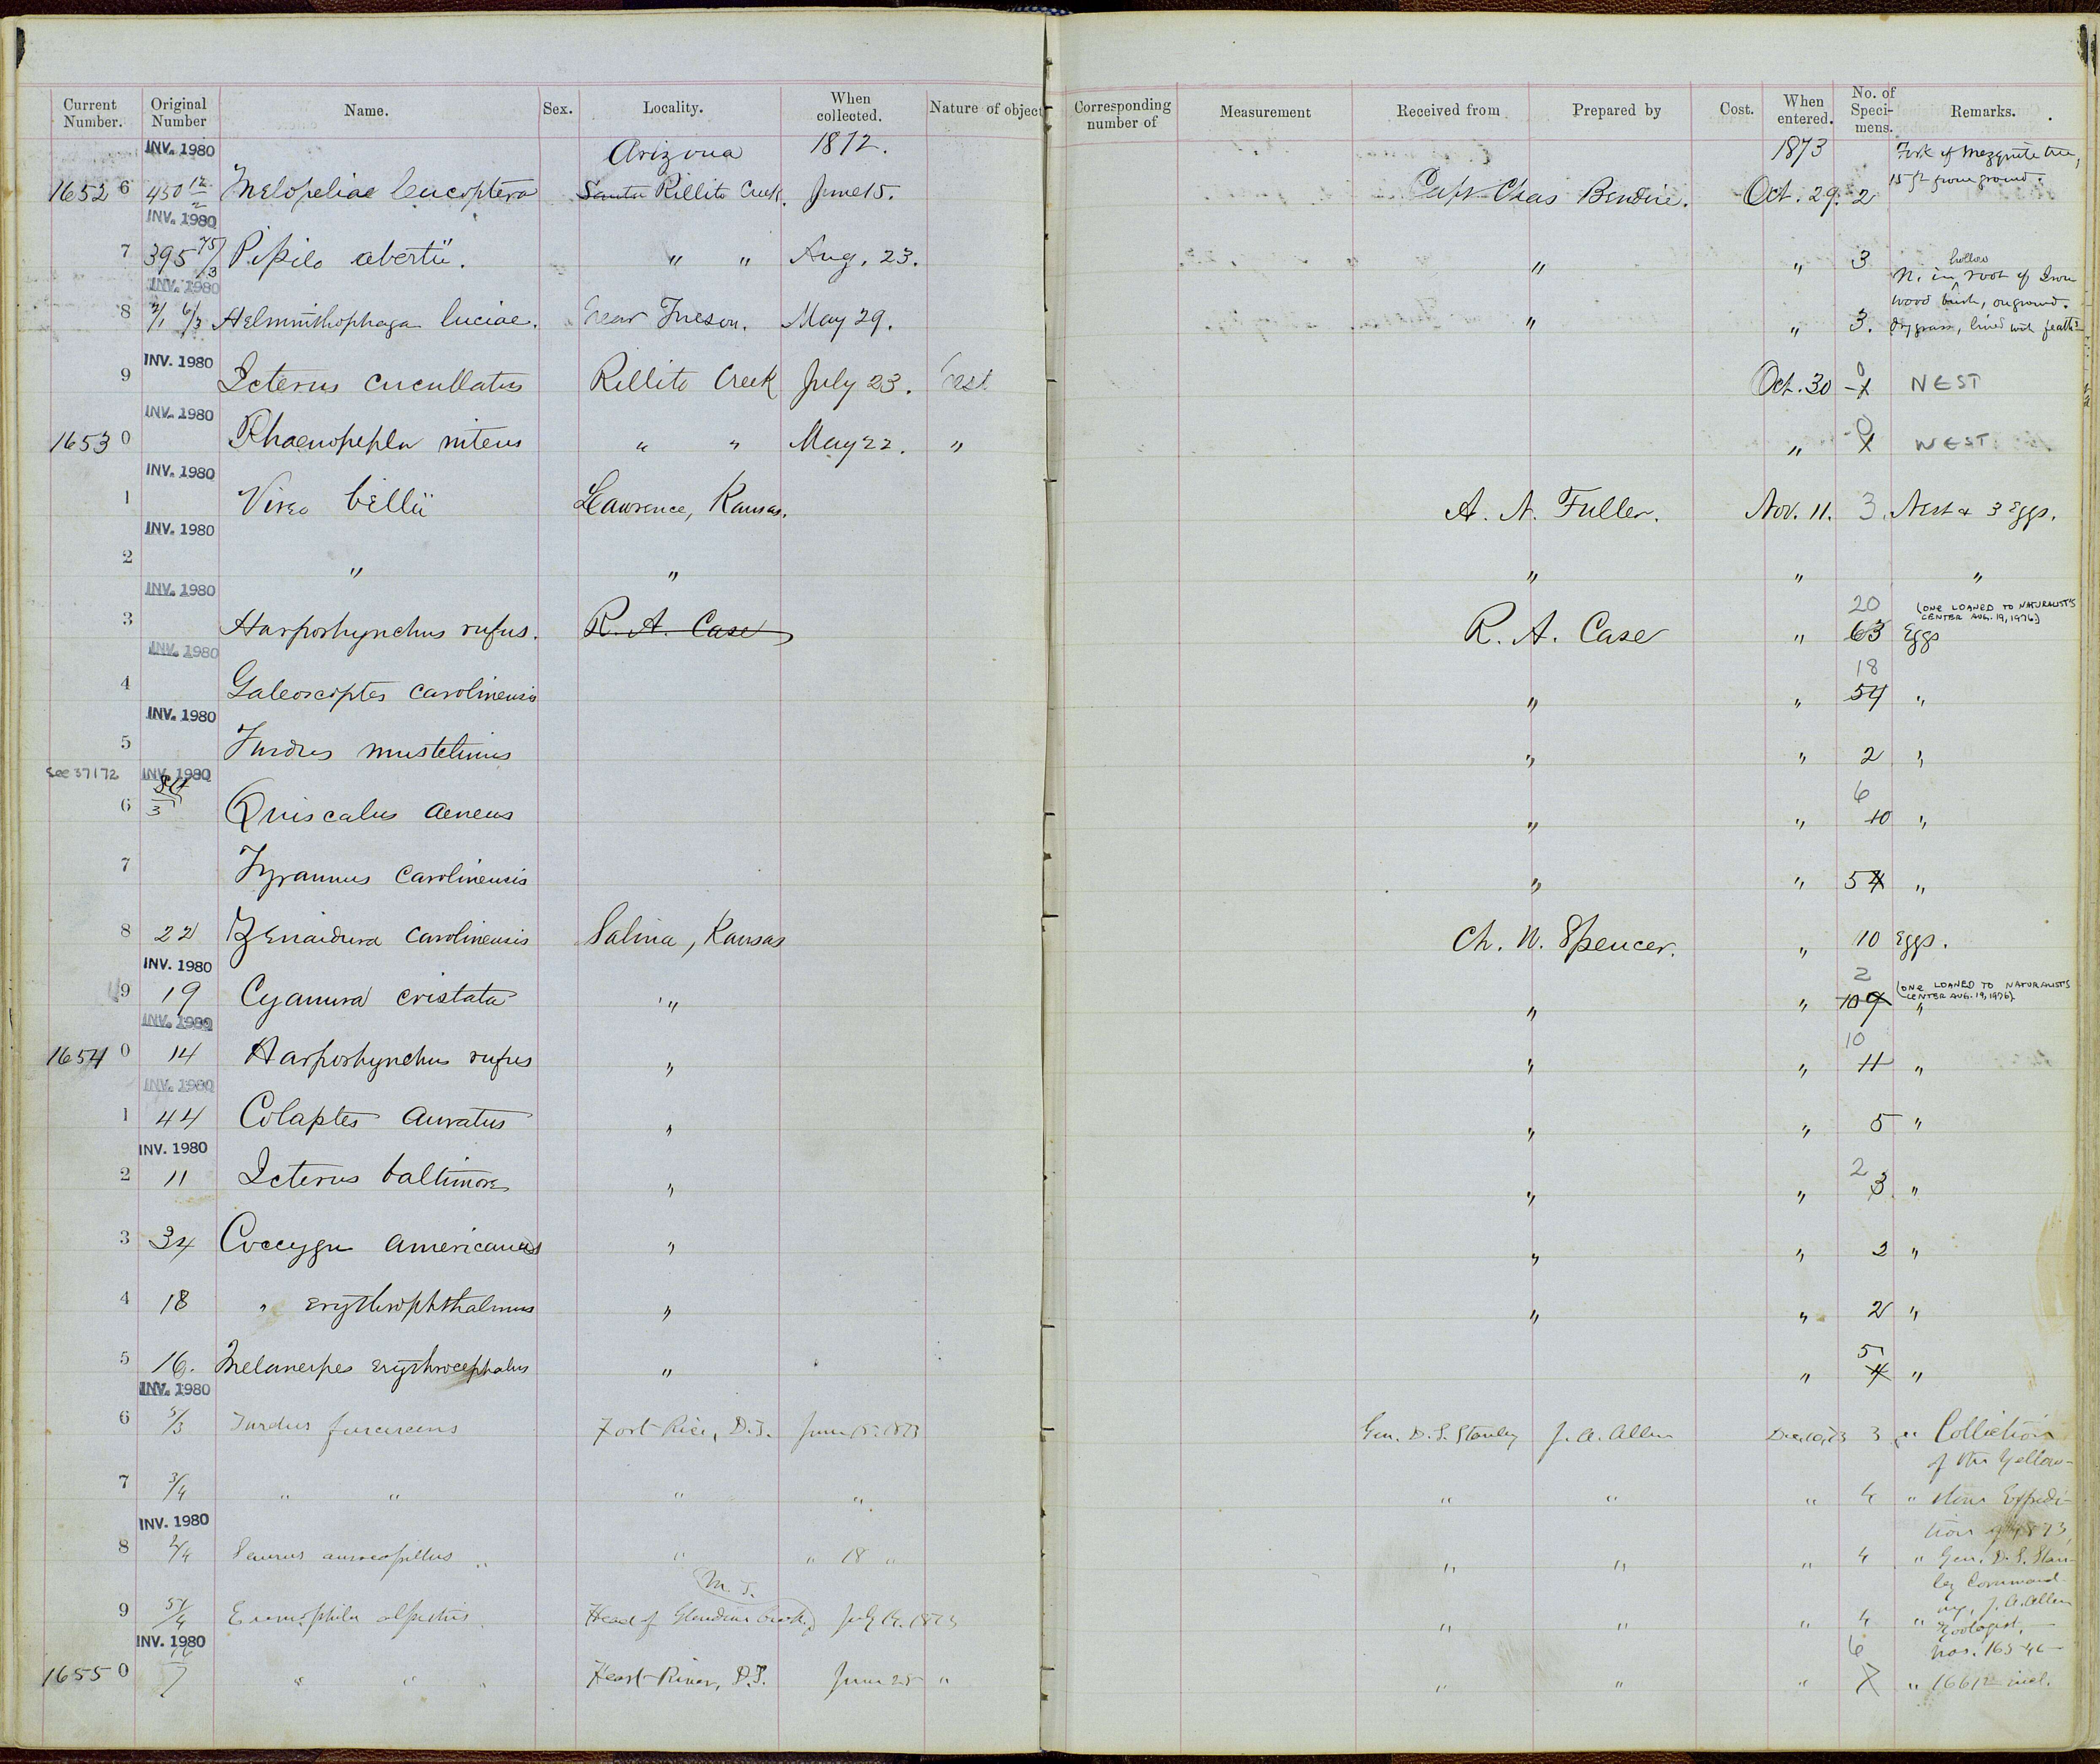 Current Number. Original Number Name. Sex. Locality. When collected. Nature of object Corresponding number of Measurement Received from Prepared by Cost. When entered. No. of Specimens. Remarks.
INV. 1980 Arizona 1872. 1873 Fork of Mezquite tree,
16526 450 12/2 Melopeliae leucoptera Santa Rillito Creek. June 15. Capt Chas Bendire. Oct. 29. 2 15 ft from ground.
INV. 1980
7 395 75/3 Pipilo abertii. " " Aug. 23. " " 3
INV. 1980 N. in hollow root of Iron
8 2/1 6/3 Helminthophaga luciae. Near Tucson. May 29. " " 3. wood bush, on ground.
dry grass, lined with feathrs
INV. 1980
9 Icterus cucullatus Rillito Creek July 23. Nest Oct. 30 0 1 NEST
INV. 1980
16530 Phaenopepla nitens " " May 22. " " 0 1 NEST
INV. 1980
1 Vireo bellii Lawrence, Kansas. A. N. Fuller. Nov. 11. 3. Nest & 3 Eggs.
INV. 1980
2 " " " " "
INV. 1980 20 (ONE LOANED TO NATURALIST'S
CENTER AUG. 19, 1976)
3 Harporhynchus rufus. R. A. Case R. A. Case " 63 Eggs
INV. 1980 18
4 Galeoscoptes carolinensis " " 54 "
INV. 1980
5 Turdus mustelinus " " 2 "
see 37172 INV. 1980 6
6 84/3 Quiscalus aeneus " " 10 "
7 Tyrannus carolinensis " " 54 "
8 22 Zenaidura carolinensis Salina, Kansas Ch. W. Spencer. " 10 Eggs.
INV. 1980 2 (ONE LOANED TO NATURALIST'S
CENTER AUG. 19, 1976)
9 19 Cyanura cristata " " " 109 "
INV. 1980 10
16540 14 Harporhynchus rufus " " " 11 "
INV. 1980
1 44 Colaptes auratus " " " 5 "
INV. 1980 2
2 11 Icterus baltimore " " " 3 "
3 34 Coccygu americanus " " " 2 "
4 18 " erythrophthalmus " " " 2 "
5
5 16. Melanerpes erythrocephalus " " 4 "
INV. 1980
6 5/3 Turdus fuscescens Fort Rice, D.T. June 15. 1873 Gen. D. S. Stanley J. A. Allen Dec. 10, 73 3 " Collection
of the Yellow-
7 3/4 " " " " " " " 4 " stone Expedi-
INV. 1980 tion of 1873,
8 2/4 Seiurus aurocapillus " " " 18 " " " " 4 " Gen. D. S. Stan-
M. T. ley Command-
9 51/4 Eremophila alpestris Head of Glendive Creek, July 14. 1873 " " " 4 " ing, J. A. Allen
Zoologist.
INV. 1980 6 Nos. 16546-
16550 16/7 " " " Heart River, D.T. June 25 " " " " 7 " 16612 incl.